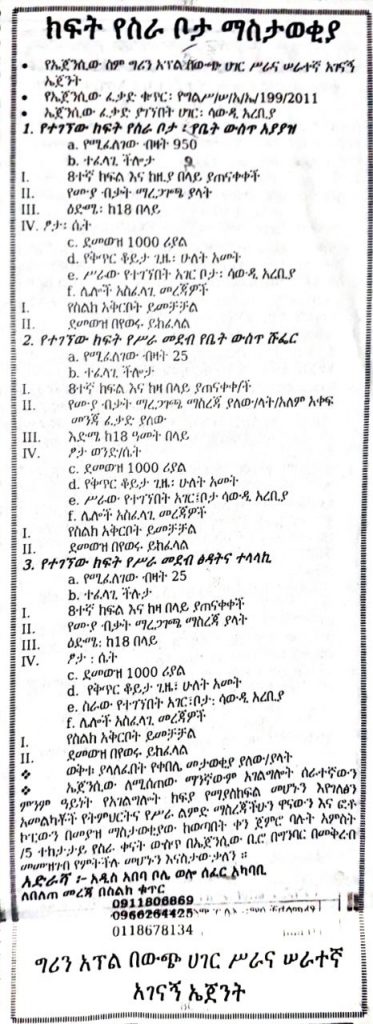 ክፍት የስራ ቦታ ማስታወቂያ
• የኤጀንሲው ስም ግሪን አፕል በውጭ ሀገር ሥራና ሠራተኛ አገናኝ
ኤጀንት
• የኤጀንሲው ፈቃድ ቁጥር፡ የግልሥ/ሠ/አ/ኤ/199/2011
• ኤጀንሲው ፈቃድ ያገኘበት ሀገር፡ ሳውዲ አረቢያ
1. የተገኘው ክፍት የስራ ቦታ ፡ የቤት ውስጥ አያያዝ
a. የሚፈለገው ብዛት 950
b. ተፈላጊ ችሎታ
I. 8ተኛ ክፍል እና ከዚያ በላይ ያጠናቀቀች
II. የሙያ ብቃት ማረጋገጫ ያላት
III. ዕድሜ፡ ከ18 በላይ
IV. ፆታ፡ ሴት
c. ደመወዝ 1000 ሪያል
d. የቅጥር ቆይታ ጊዜ፡ ሁለት አመት
e. ሥራው የተገኘበት አገር ቦታ፡ ሳውዲ አረቢያ
f. ሌሎች አስፈላጊ መረጃዎች
I. የስልክ አቅርቦት ይመቻቻል
II. ደመወዝ በየወሩ ይከፈላል
2. የተገኘው ክፍት የሥራ መደብ የቤት ውስጥ ሹፌር
a. የሚፈለገው ብዛት 25
b. ተፈላጊ ችሎታ
I. 8ተኛ ክፍል እና ከዛ በላይ ያጠናቀቀ/ች
II. የሙያ ብቃት ማረጋገጫ ማስረጃ ያለው/ላት/አለም አቀፍ
መንጃ ፈቃድ ያለው
III. እድሜ ከ18 ዓመት በላይ
IV. ፆታ ወንድ/ሴት
c. ደመወዝ 1000 ሪያል
d. የቅጥር ቆይታ ጊዜ፡ ሁለት አመት
e. ሥራው የተገኘበት አገር፡ቦታ ሳውዲ አረቢያ
f. ሌሎች አስፈላጊ መረጃዎች
I. የስልክ አቅርቦት ይመቻቻል
II. ደመወዝ በየወሩ ይከፈላል
3. የተገኘው ክፍት የሥራ መደብ ፅዳትና ተላላኪ
a. የሚፈለገው ብዛት 25
b. ተፈላጊ ችሎታ
I. 8ተኛ ክፍል እና ከዛ በላይ ያጠናቀቀች
II. የሙያ ብቃት ማረጋገጫ ማስረጃ ያላት
III. ዕድሜ፡ ከ18 በላይ
IV. ፆታ ፡ ሴት
c. ደመወዝ 1000 ሪያል
d. የቅጥር ቆይታ ጊዜ፡ ሁለት አመት
e. ስራው የተገኘበት አገር፡ቦታ፡ ሳውዲ አረቢያ
f. ሌሎች አስፈላጊ መረጃዎች
I. የስልክ አቅርቦት ይመቻቻል
II. ደመወዝ በየወሩ ይከፈላል
❖ ወቅቱ ያላለፈበት የቀበሌ መታወቂያ ያለው/ያላት
❖ ኤጀንሲው ለሚሰጠው ማንኛውም አገልግሎት ሰራተኛውን
ምንም ዓይነት የአገልግሎት ክፍያ የማያስከፍል መሆኑን እየገለፅን
አመልካቾች የትምህርትና የሥራ ልምድ ማስረጃችሁን ዋናውን እና ፎቶ
ኮፒውን በመያዝ ማስታወቂያው ከወጣበት ቀን ጀምሮ ባሉት አምስት
/5 ተከታታይ የስራ ቀናት ውስጥ በኤጀንሲው ቢሮ በግንባር በመቅረብ
መመዝገብ የምትችሉ መሆኑን እናስታውቃለን ።
አድራሻ ፡- አዲስ አበባ ቦሌ ወሎ ሰፈር አካባቢ
ለበለጠ መረጃ በስልክ ቁጥር
0911806869
0966264425
0118678134
ግሪን አፕል በውጭ ሀገር ሥራና ሠራተኛ
አገናኝ ኤጀንት